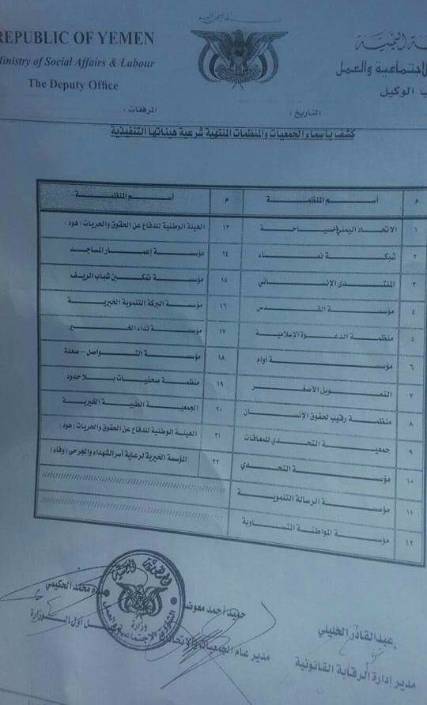 REPUBLIC OF YEMEN
Ministry of Social Affairs & Labour
The Deputy Office
الاجتماعية والعمل
الوكيل
التاريخ :
المرفقات :
كشف بأسماء الجمعيات والمنظمات المنتهية شرعية هيئاتها التنفيذية
م اسم المنظمة م اسم المنظمة
١ الاتحاد اليمني للسياحة ١٣ الهيئة الوطنية للدفاع عن الحقوق والحريات (هود)
٢ شبكة نماء ١٤ مؤسسة إعمار المساجد
٣ المنتدى الإنساني ١٥ مؤسسة تمكين شباب الريف
٤ مؤسسة القدس ١٦ مؤسسة البركة التنموية الخيرية
٥ منظمة الدعوة الإسلامية ١٧ مؤسسة نداء الخير
٦ مؤسسة أوام ١٨ مؤسسة التواصل - صعدة
٧ التمويل الأصغر ١٩ منظمة صحفيات بلا حدود
٨ منظمة رقيب لحقوق الإنسان ٢٠ الجمعية الطبية الخيرية
٩ جمعية التحدي للمعاقات ٢١ الهيئة الوطنية للدفاع عن الحقوق والحريات (هود)
١٠ مؤسسة التحدي ٢٢ المؤسسة الخيرية لرعاية أسر الشهداء والجرحى (وفاء)
١١ مؤسسة الرسالة التنموية
١٢ مؤسسة المواطنة
عبدالقادر الخليلي
مدير إدارة الرقابة القانونية
أحمد
مدير عام الجمعيات والاتحادات
محمد الحكيمي
أول الوزارة